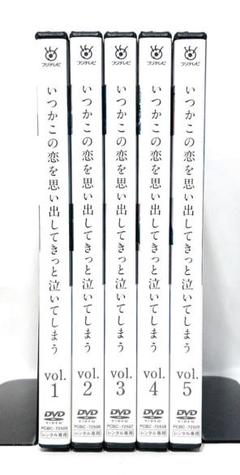 フジテレビ
いつかこの恋を思い出してきっと泣いてしまう
vol.
1
DVD
VIDEO
PCBC-72505
レンタル専用
フジテレビ
いつかこの恋を思い出してきっと泣いてしまう
vol.
2
DVD
VIDEO
PCBC-72506
レンタル専用
フジテレビ
いつかこの恋を思い出してきっと泣いてしまう
vol.
3
DVD
VIDEO
PCBC-72507
レンタル専用
フジテレビ
いつかこの恋を思い出してきっと泣いてしまう
vol.
4
DVD
VIDEO
PCBC-72508
レンタル専用
フジテレビ
いつかこの恋を思い出してきっと泣いてしまう
vol.
5
DVD
VIDEO
PCBC-72509
レンタル専用